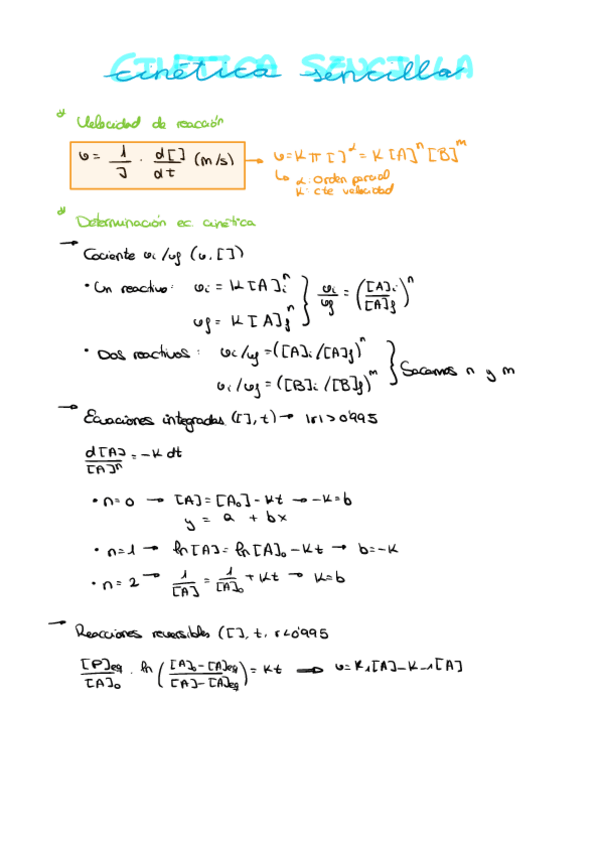 CINÉTICA SENCILLA
cinética sencilla
Velocidad de reacción
v = 1/J · d[]/dt (m/s) → v = K π []^α = K [A]^n [B]^m
↳ α: Orden parcial
K: cte velocidad
Determinación ec. cinética
→ Cociente vi/vf (v, [])
• Un reactivo: vi = K [A]i^n } vi/vf = ([A]i/[A]f)^n
vf = K [A]f^n
• Dos reactivos: vi/vf = ([A]i/[A]f)^n } Sacamos n y m
vi/vf = ([B]i/[B]f)^m
→ Ecuaciones integradas ([], t) → |r| > 0'995
d[A]/[A]^n = -K dt
• n=0 → [A] = [A₀] - Kt → -K=b
y = a + bx
• n=1 → ln[A] = ln[A]₀ - Kt → b=-K
• n=2 → 1/[A] = 1/[A]₀ + Kt → K=b
→ Reacciones reversibles ([], t, r<0'995
[P]eq/[A]₀ · ln([A]₀-[A]eq/[A]-[A]eq) = Kt ⇒ v = K₁[A]-K₋₁[A]